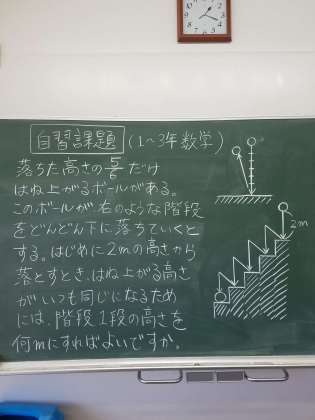 自習課題 (1~3年数学)
落ちた高さの5/6だけ
はね上がるボールがある。
このボールが、右のような階段
をどんどん下に落ちていくと
する。はじめに2mの高さから
落とすとき、はね上がる高さ
がいつも同じになるため
には、階段1段の高さを
何mにすればよいですか。
2m